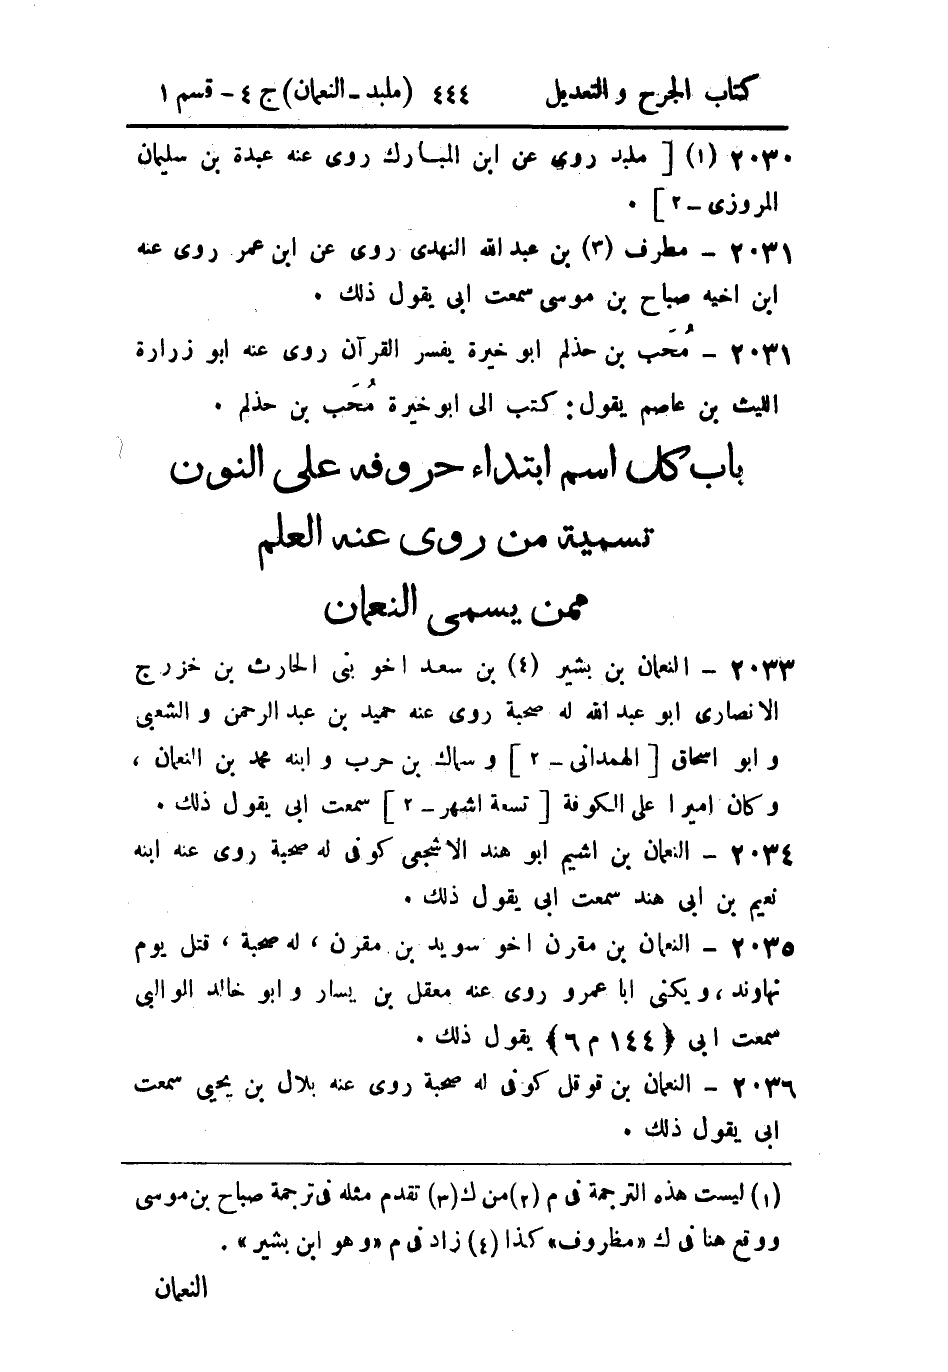 كتاب الجرح والتعديل ٤٤٤ (ملبد ـ النعمان) ج ٤ - قسم ١
٢٠٣٠ (١) [ ملبد روى عن ابن المبارك روى عنه عبدة بن سليمان
المروزى ـ ٢ ] .
٢٠٣١ - مطرف (٣) بن عبد الله النهدى روى عن ابن عمر روى عنه
ابن اخيه صباح بن موسى سمعت ابى يقول ذلك .
٢٠٣١ - مُحَب بن حذلم ابو خيرة يفسر القرآن روى عنه ابو زرارة
الليث بن عاصم يقول : كتب الى ابو خيرة مُحَب بن حذلم .
باب كل اسم ابتداء حروفه على النون
تسمية من روى عنه العلم
ممن يسمى النعمان
٢٠٣٣ - النعمان بن بشير (٤) بن سعد اخو بنى الحارث بن خزرج
الانصارى ابو عبد الله له صحبة روى عنه حميد بن عبد الرحمن والشعبى
وابو اسحاق [ الهمدانى ـ ٢ ] وسماك بن حرب وابنه محمد بن النعمان ،
وكان اميرا على الكوفة [ تسعة اشهر ـ ٢ ] سمعت ابى يقول ذلك .
٢٠٣٤ - النعمان بن اشيم ابو هند الاشجعى كوفى له صحبة روى عنه ابنه
نعيم بن ابى هند سمعت ابى يقول ذلك .
٢٠٣٥ - النعمان بن مقرن اخو سويد بن مقرن ، له صحبة ، قتل يوم
نهاوند ، ويكنى ابا عمرو روى عنه معقل بن يسار وابو خالد الوالبى
سمعت ابى ﴿١٤٤ م ٦﴾ يقول ذلك .
٢٠٣٦ - النعمان بن قوقل كوفى له صحبة روى عنه بلال بن يحيى سمعت
ابى يقول ذلك .
(١) ليست هذه الترجمة فى م (٢) من ك (٣) تقدم مثله فى ترجمة صباح بن موسى
ووقع هنا فى ك «مظروف» كذا (٤) زاد فى م «وهو ابن بشير» .
النعمان